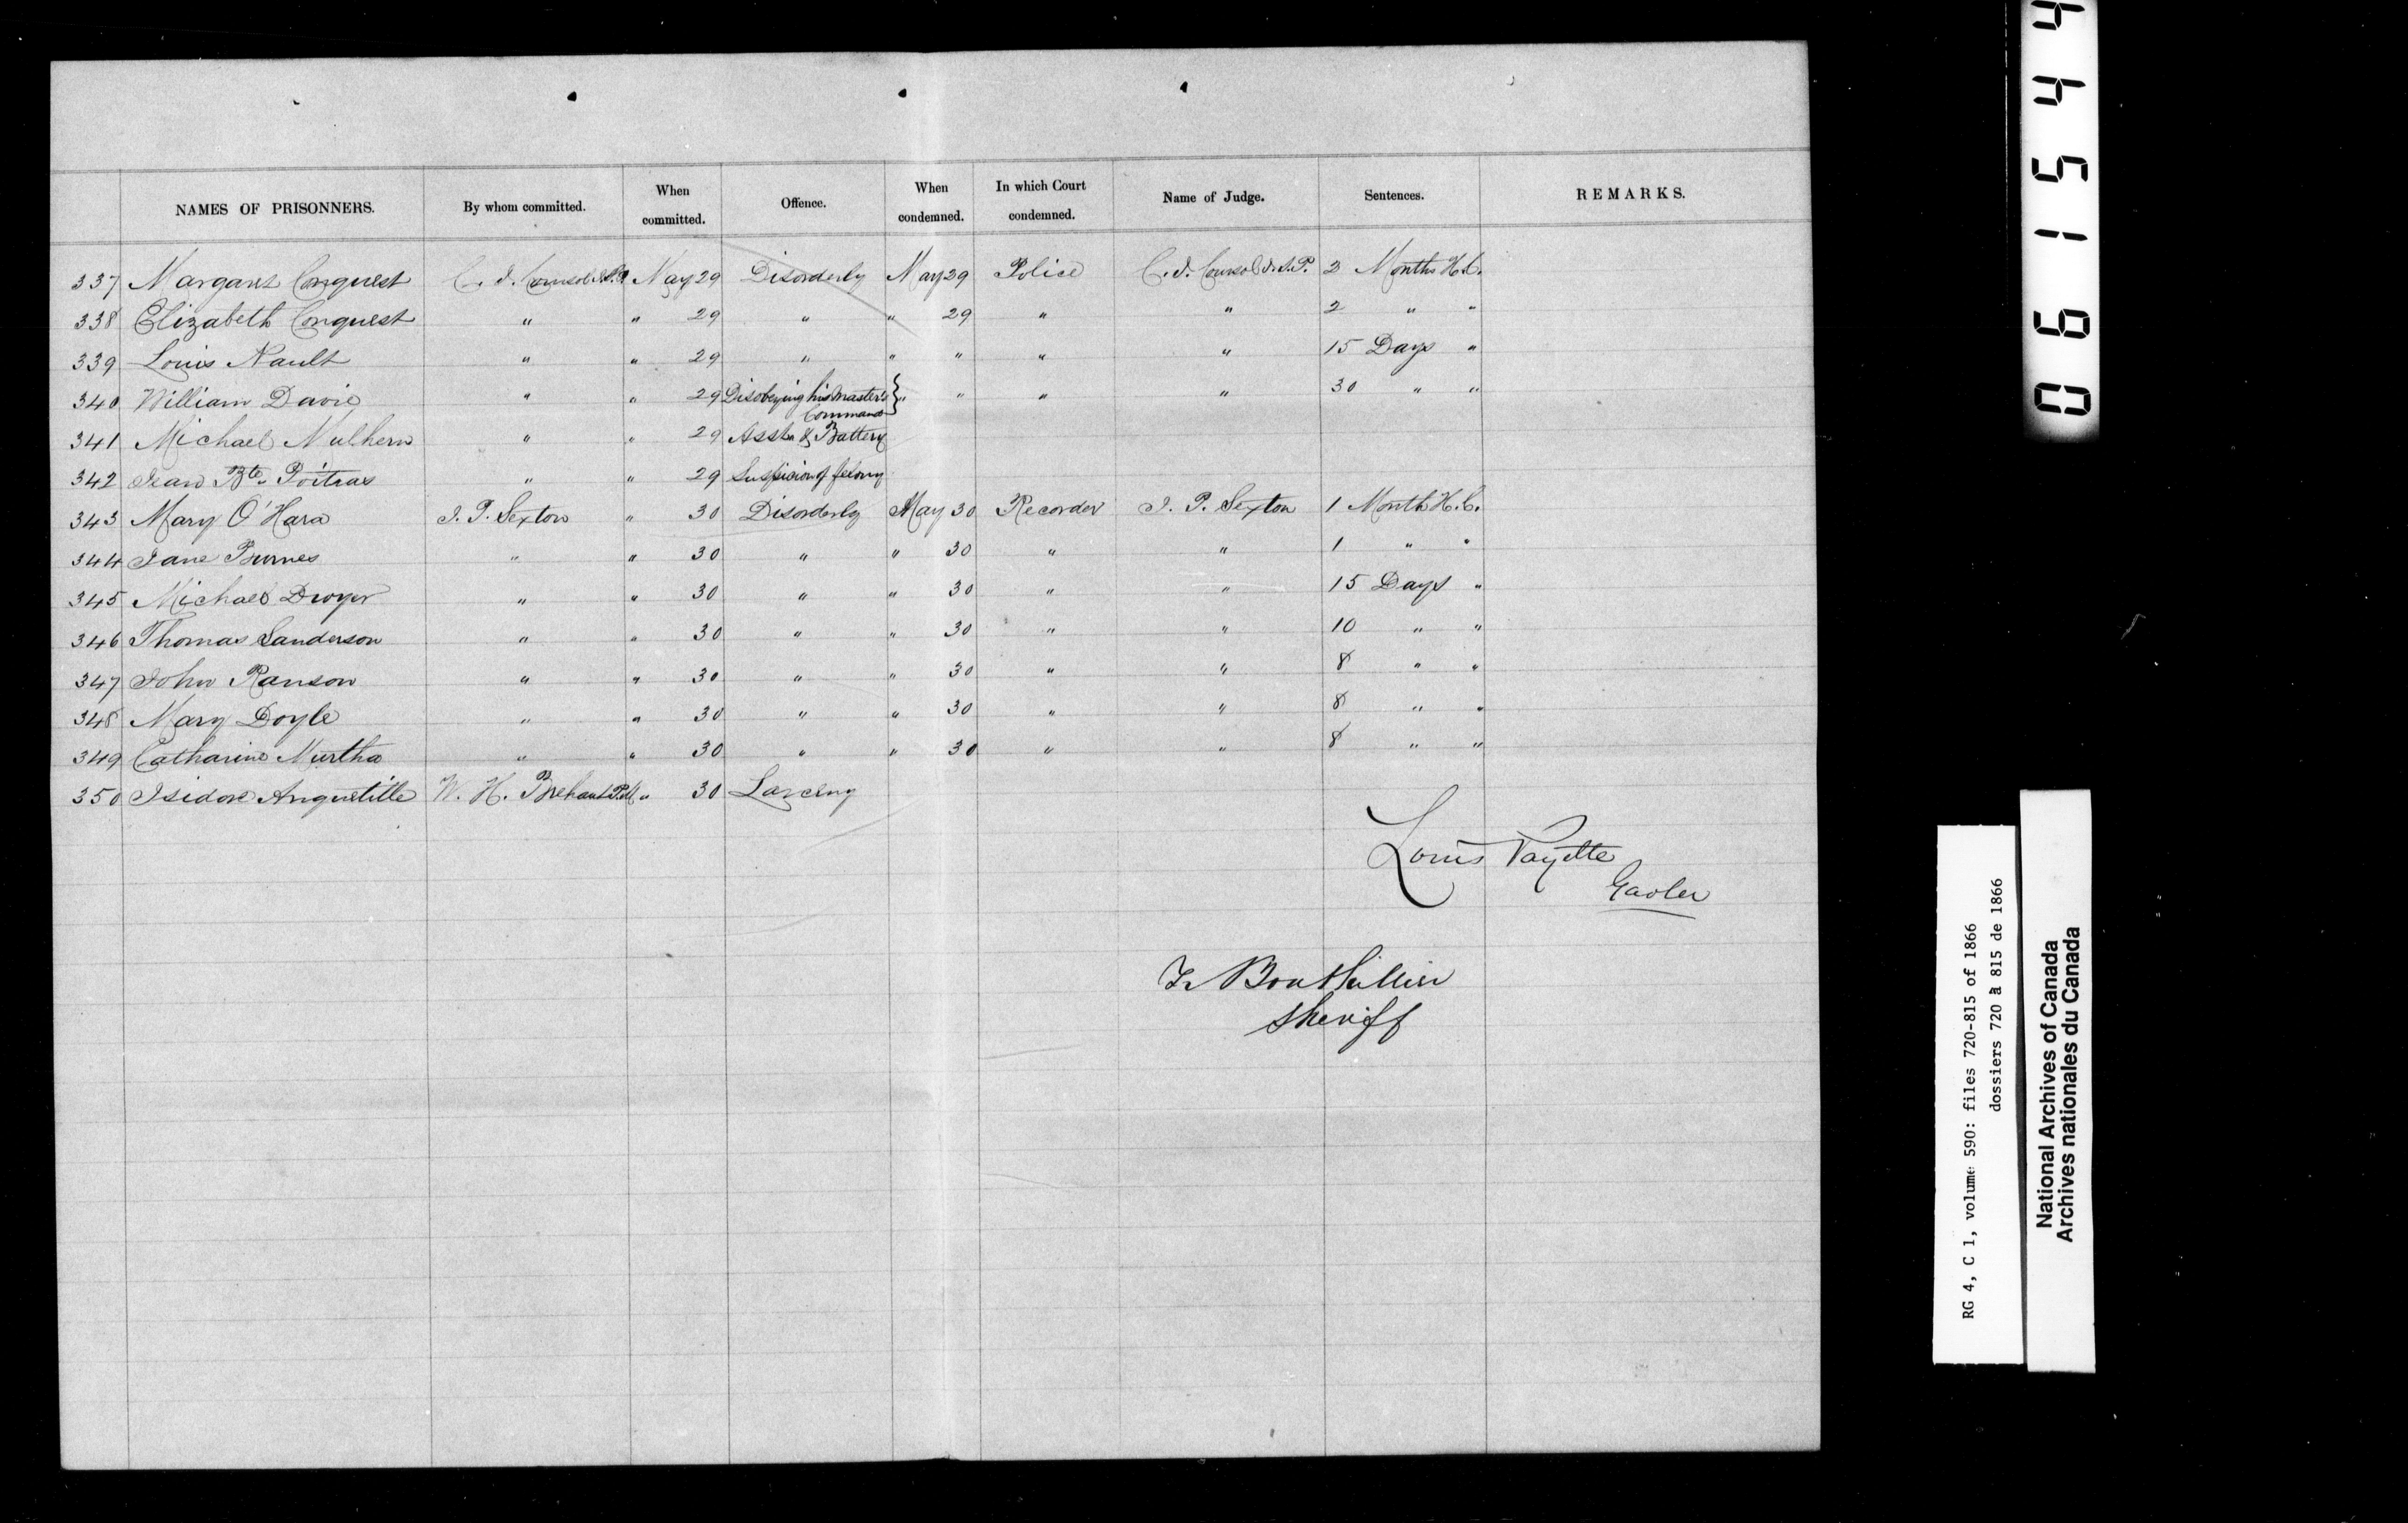 NAMES OF PRISONNERS. By whom committed. When committed. Offence. When condemned. In which Court condemned. Name of Judge. Sentences. REMARKS.
337 Margaret Conquest C. J. Coursol J.S.P. May 29 Disorderly May 29 Police C. J. Coursol J.S.P. 2 Months H.L.
338 Elizabeth Conquest " " 29 " " 29 " " 2 " "
339 Louis Nault " " 29 " " " " " 15 Days "
340 William Davie " " 29 Disobeying his Master's Commands } " " " " 30 " "
341 Michael Mulhern " " 29 Asslt & Battery
342 Jean Bte Poitras " " 29 Suspicion of felony
343 Mary O'Hara J. P. Sexton " 30 Disorderly May 30 Recorder J. P. Sexton 1 Month H.L.
344 Jane Burnes " " 30 " " 30 " " 1 " "
345 Michael Dwyer " " 30 " " 30 " " 15 Days "
346 Thomas Sanderson " " 30 " " 30 " " 10 " "
347 John Ranson " " 30 " " 30 " " 8 " "
348 Mary Doyle " " 30 " " 30 " " 8 " "
349 Catharine Murtha " " 30 " " 30 " " 8 " "
350 Isidore Anquetille W. H. Brehaut P.M. " 30 Larceny
Louis Payette
Gaoler
T. Bouthillier
Sheriff
061544
RG 4, C 1, volume 590: files 720-815 of 1866
dossiers 720 à 815 de 1866
National Archives of Canada
Archives nationales du Canada